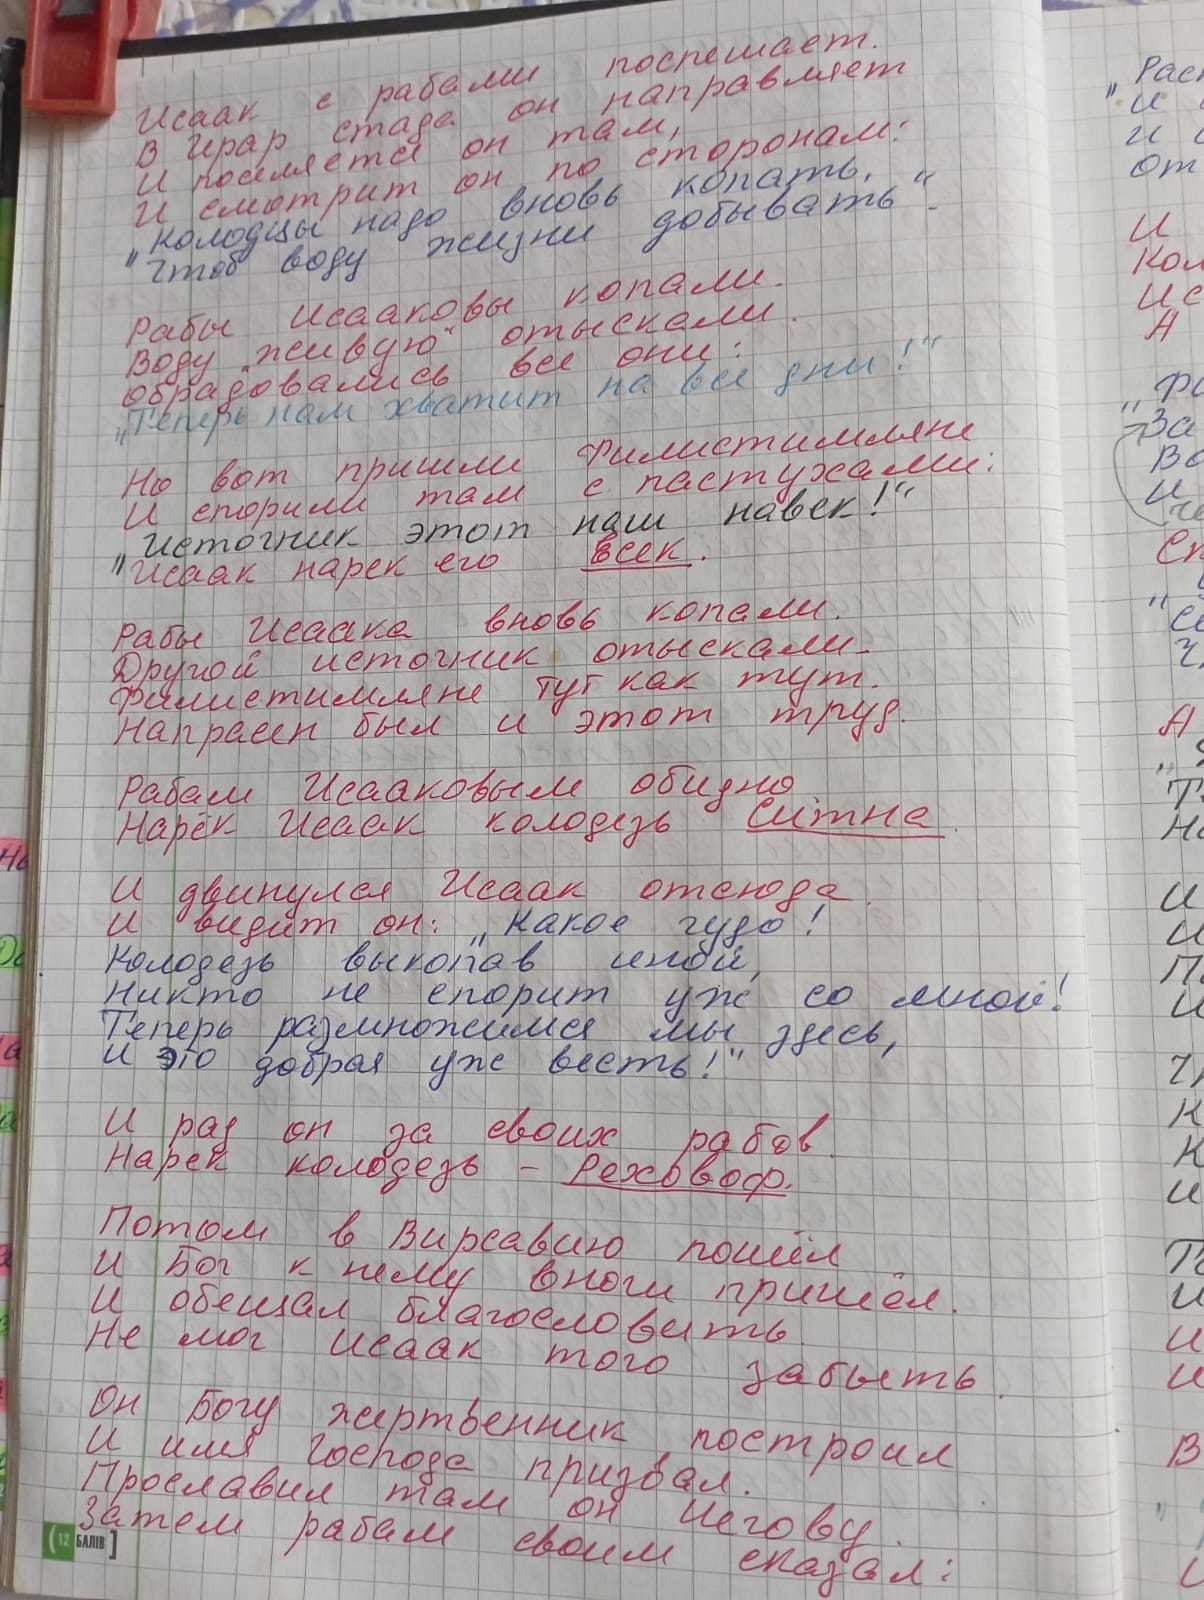 Исаак с рабами поспешает.
В Ирар стада он направляет
И поселяется он там,
И смотрит он по сторонам:
"Колодцы надо вновь копать,
Чтоб воду жизни добывать".
Рабы Исааковы копали.
Воду "живую" отыскали.
Обрадовались все они:
"Теперь нам хватит на все дни!"
Но вот пришли Филистимляне
И спорили там с пастухами:
"Источник этот наш навек!"
Исаак нарек его Есек.
Рабы Исаака вновь копали.
Другой источник отыскали.
Филистимляне тут как тут.
Напрасен был и этот труд.
Рабам Исааковым обидно
Нарёк Исаак колодезь Ситна.
И двинулся Исаак отсюда.
И видит он: "Какое чудо!
Колодезь выкопав иной,
Никто не спорит уж со мной!
Теперь размножимся мы здесь,
И это добрая уж весть!"
И рад он за своих рабов.
Нарек колодезь - Реховоф.
Потом в Вирсавию пошёл
И Бог к нему в ночи пришёл.
И обещал благословить.
Не мог Исаак того забыть.
Он Богу жертвенник построил
И имя Господа призвал.
Прославил там он Иегову.
Затем рабам своим сказал:
12 БАЛІВ
Расп
"И
И
От
И
Кол
Ис
А
"Фи
За
Во
И
Сп
А
Те
На
И
И
И
К
К
И
И
И
И
В